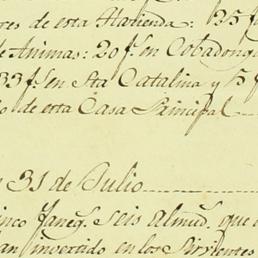 res de esta Hacienda: 25 f
de Animas: 20 f.s en Cobadong
33 f.s en Sta Catalina y 5 f
o de esta Casa Principal
31 de Julio
inco faneg.s seis Almud.s que
an invertido en los Sirvientes